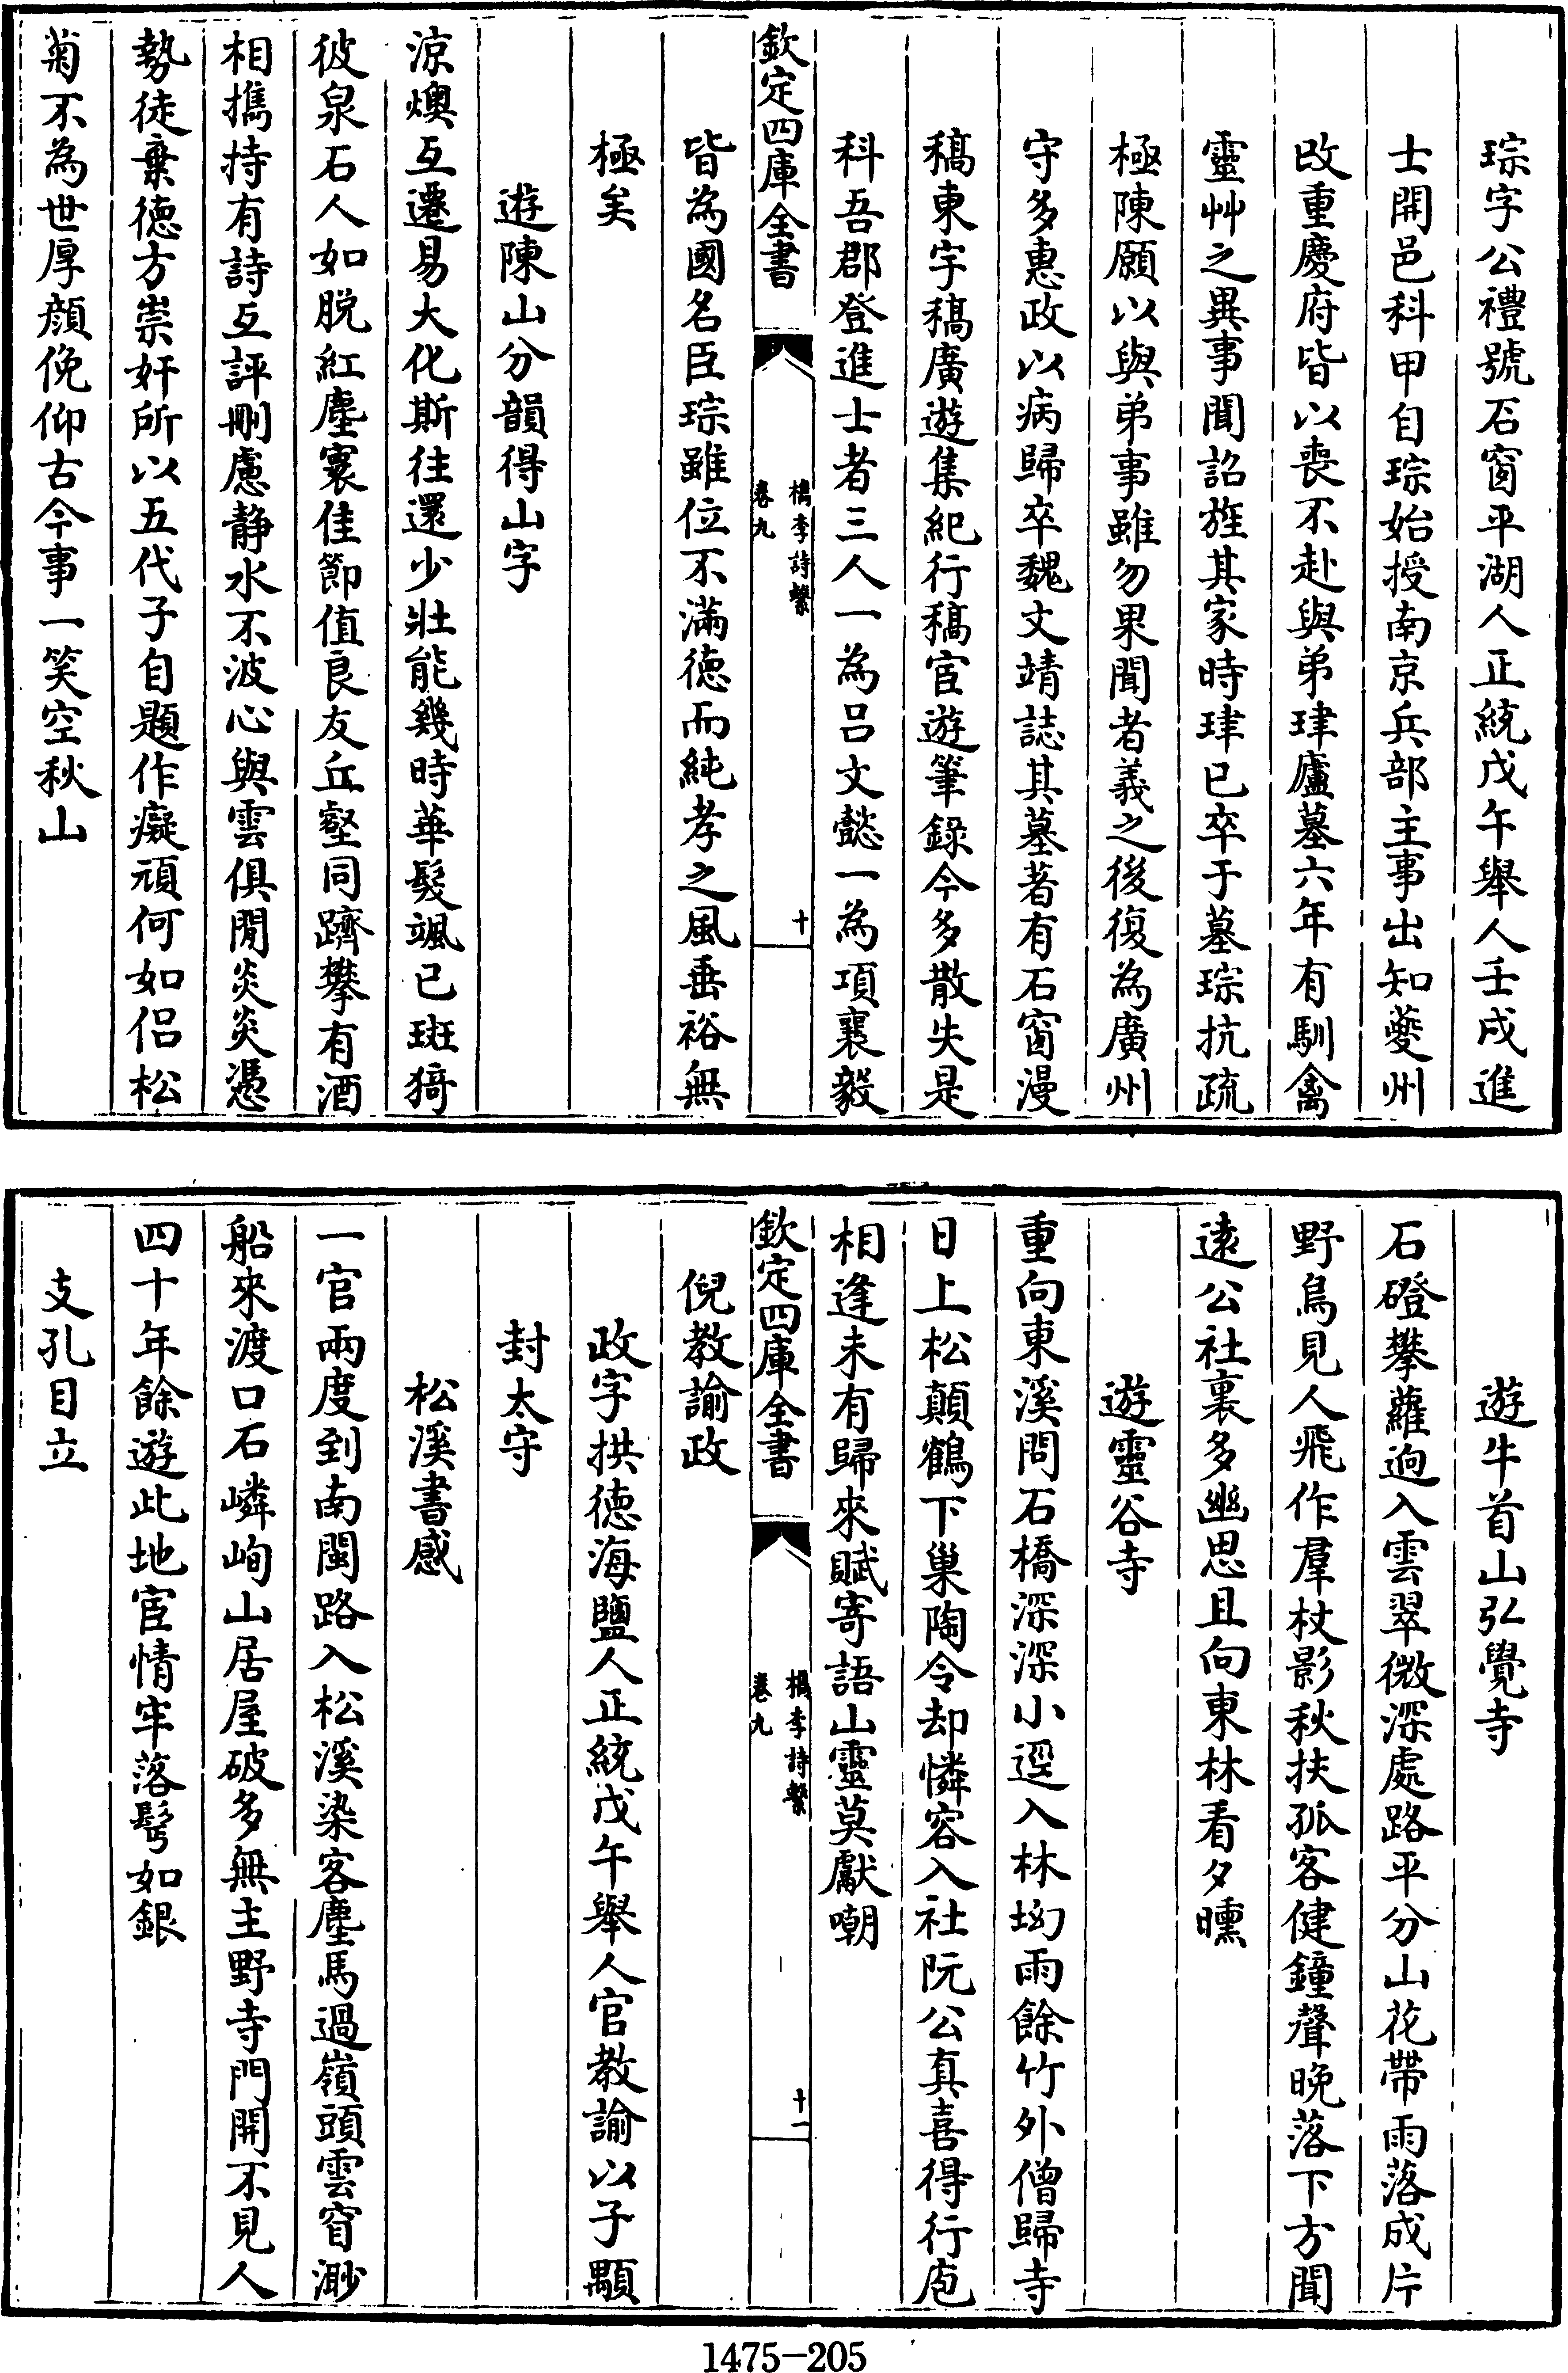 琮字公禮號石窗平湖人正統戊午舉人壬戌進
士開邑科甲自琮始授南京兵部主事出知夔州
改重慶府皆以喪不赴與弟珒廬墓六年有馴禽
靈艸之異事聞詔旌其家時珒已卒于墓琮抗疏
極陳願以與弟事雖勿果聞者義之後復為廣州
守多惠政以病歸卒魏文靖誌其墓著有石窗漫
稿東宇稿廣遊集紀行稿宦遊筆錄今多散失是
科吾郡登進士者三人一為呂文懿一為項襄毅
欽定四庫全書
檇李詩繫
卷九
十
皆為國名臣琮雖位不滿德而純孝之風垂裕無
極矣
遊陳山分韻得山字
涼燠互遷易大化斯往還少壯能幾時華髮颯已斑猗
彼泉石人如脫紅塵寰佳節值良友丘壑同躋攀有酒
相攜持有詩互評刪慮静水不波心與雲俱閒炎炎憑
勢徒棄德方崇奸所以五代子自題作癡頑何如侶松
菊不為世厚顏俛仰古今事一笑空秋山
遊牛首山弘覺寺
石磴攀蘿逈入雲翠微深處路平分山花帶雨落成片
野鳥見人飛作羣杖影秋扶孤客健鐘聲晚落下方聞
遠公社裏多幽思且向東林看夕曛
遊靈谷寺
重向東溪問石橋深深小逕入林坳雨餘竹外僧歸寺
日上松顛鶴下巢陶令却憐容入社阮公真喜得行庖
相逢未有歸來賦寄語山靈莫獻嘲
欽定四庫全書
檇李詩繫
卷九
十一
倪教諭政
政字拱德海鹽人正統戊午舉人官教諭以子顒
封太守
松溪書感
一官兩度到南閩路入松溪染客塵馬過嶺頭雲窅渺
船來渡口石嶙峋山居屋破多無主野寺門開不見人
四十年餘遊此地宦情牢落鬂如銀
支孔目立
1475-205